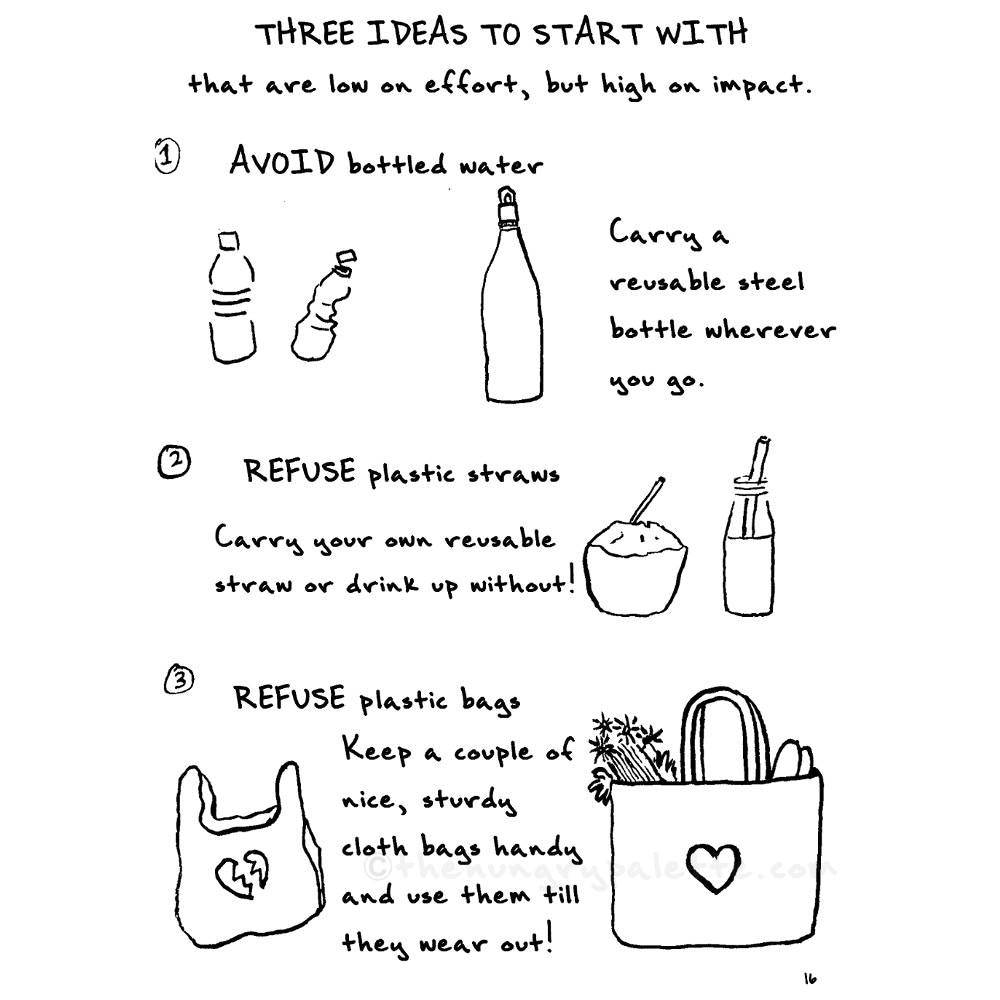 THREE IDEAS TO START WITH
that are low on effort, but high on impact.
1
AVOID bottled water
Carry a
reusable steel
bottle wherever
you go.
2
REFUSE plastic straws
Carry your own reusable
straw or drink up without!
3
REFUSE plastic bags
Keep a couple of
nice, sturdy
cloth bags handy
©thehungrypalette.com
and use them till
they wear out!
16